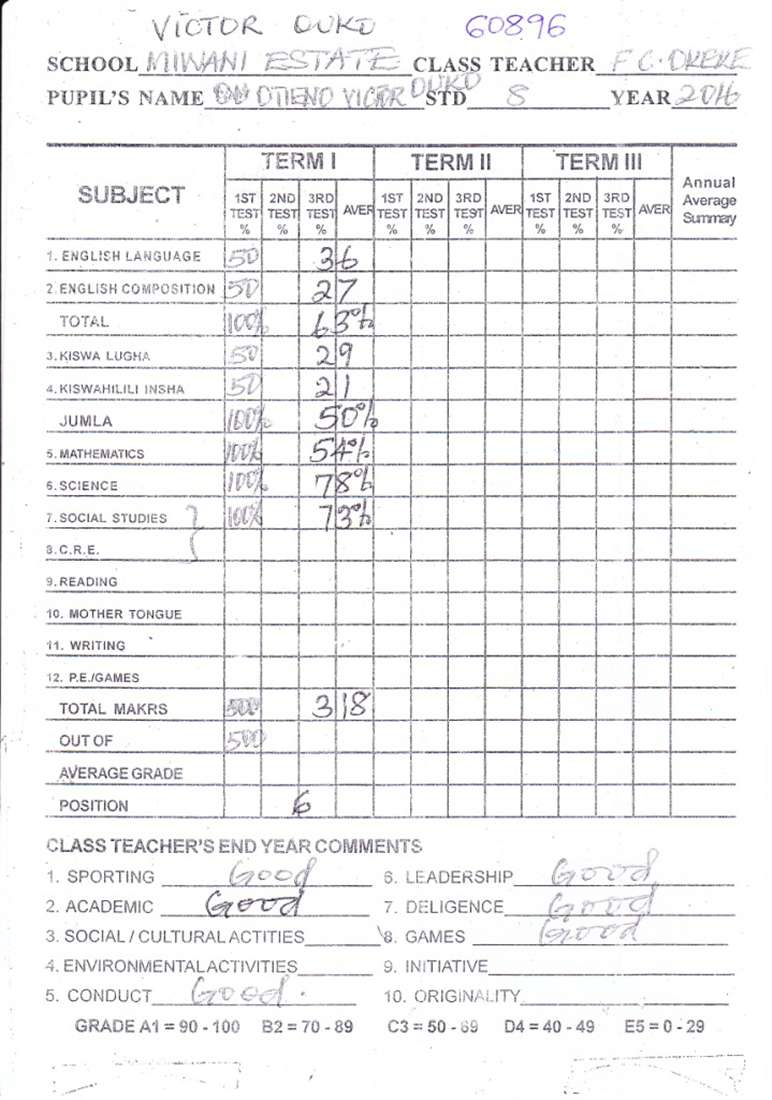 VICTOR OUKO 60896
SCHOOL MIWANI ESTATE CLASS TEACHER F.C. OKEKE
PUPIL'S NAME OTIENO VICTOR OUKO STD 8 YEAR 2016
SUBJECT TERM I TERM II TERM III Annual Average Summary
1ST TEST % 2ND TEST % 3RD TEST % AVER 1ST TEST % 2ND TEST % 3RD TEST % AVER 1ST TEST % 2ND TEST % 3RD TEST % AVER
1. ENGLISH LANGUAGE 50 36
2. ENGLISH COMPOSITION 50 27
TOTAL 100% 63%
3. KISWA LUGHA 50 29
4. KISWAHILILI INSHA 50 21
JUMLA 100% 50%
5. MATHEMATICS 100% 54%
6. SCIENCE 100% 78%
7. SOCIAL STUDIES 100% 73%
8. C.R.E.
9. READING
10. MOTHER TONGUE
11. WRITING
12. P.E./GAMES
TOTAL MAKRS 500 318
OUT OF 500
AVERAGE GRADE
POSITION 6
CLASS TEACHER'S END YEAR COMMENTS
1. SPORTING Good 6. LEADERSHIP Good
2. ACADEMIC Good 7. DELIGENCE Good
3. SOCIAL / CULTURAL ACTITIES 8. GAMES Good
4. ENVIRONMENTAL ACTIVITIES 9. INITIATIVE
5. CONDUCT Good. 10. ORIGINALITY
GRADE A1 = 90 - 100 B2 = 70 - 89 C3 = 50 - 69 D4 = 40 - 49 E5 = 0 - 29